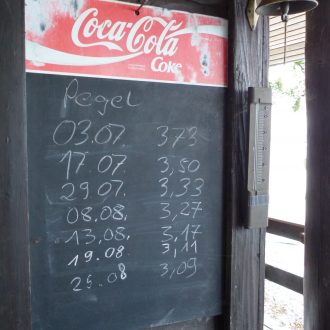 Coca-Cola
Coke
Pegel
03.07. 3,73
17.07. 3,50
29.07. 3,33
08.08. 3,27
13.08. 3,17
19.08 3,11
25.08 3,09